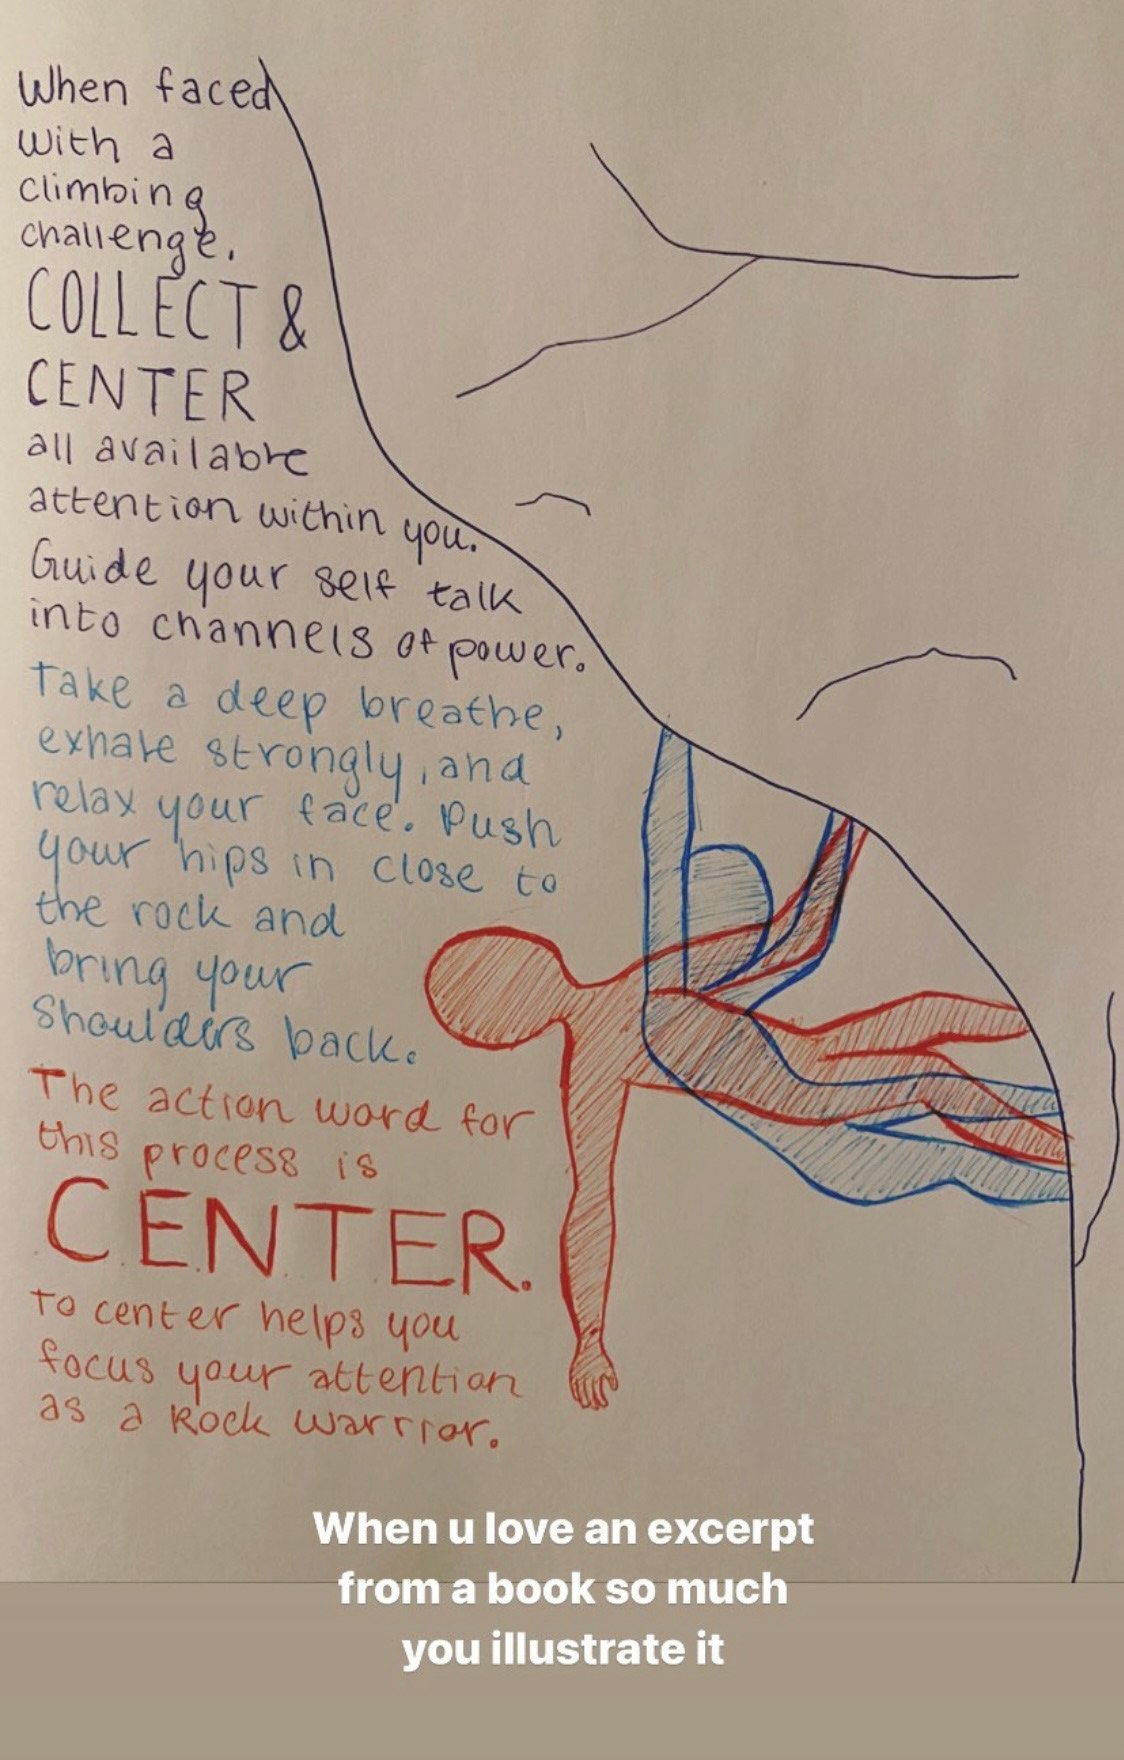 When faced
with a
climbing
challenge,
COLLECT &
CENTER
all available
attention within you.
Guide your self talk
into channels of power.
Take a deep breathe,
exhale strongly, and
relax your face. Push
your hips in close to
the rock and
bring your
shoulders back.
The action word for
this process is
CENTER.
To center helps you
focus your attention
as a Rock Warrior.
When u love an excerpt
from a book so much
you illustrate it